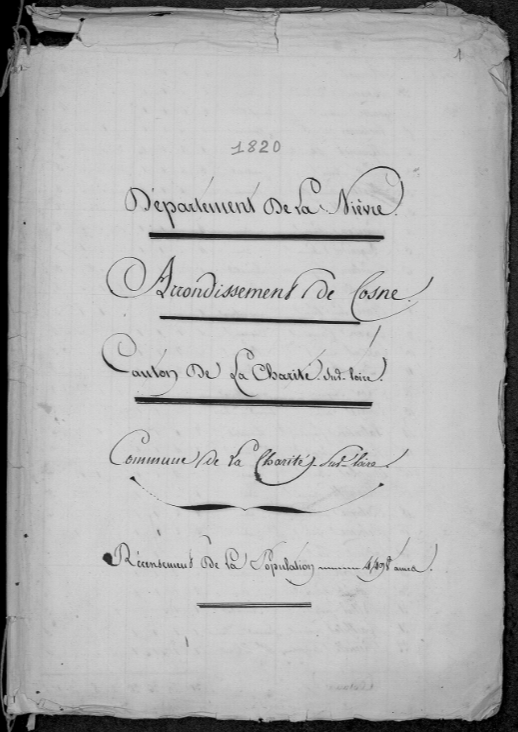 1
1820
Département De La Nièvre.
Arrondissement de Cosne.
Canton De La Charité Sur-loire.
Commune de la Charité Sur-loire.
Récensement De la Population